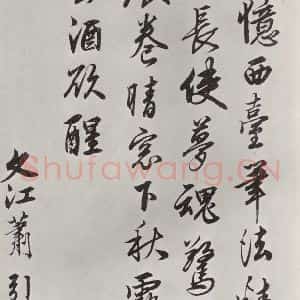 憶西臺筆法
長使夢魂驚
卷晴窓下秋
酒欲醒
文江蕭引
Shufawang.CN